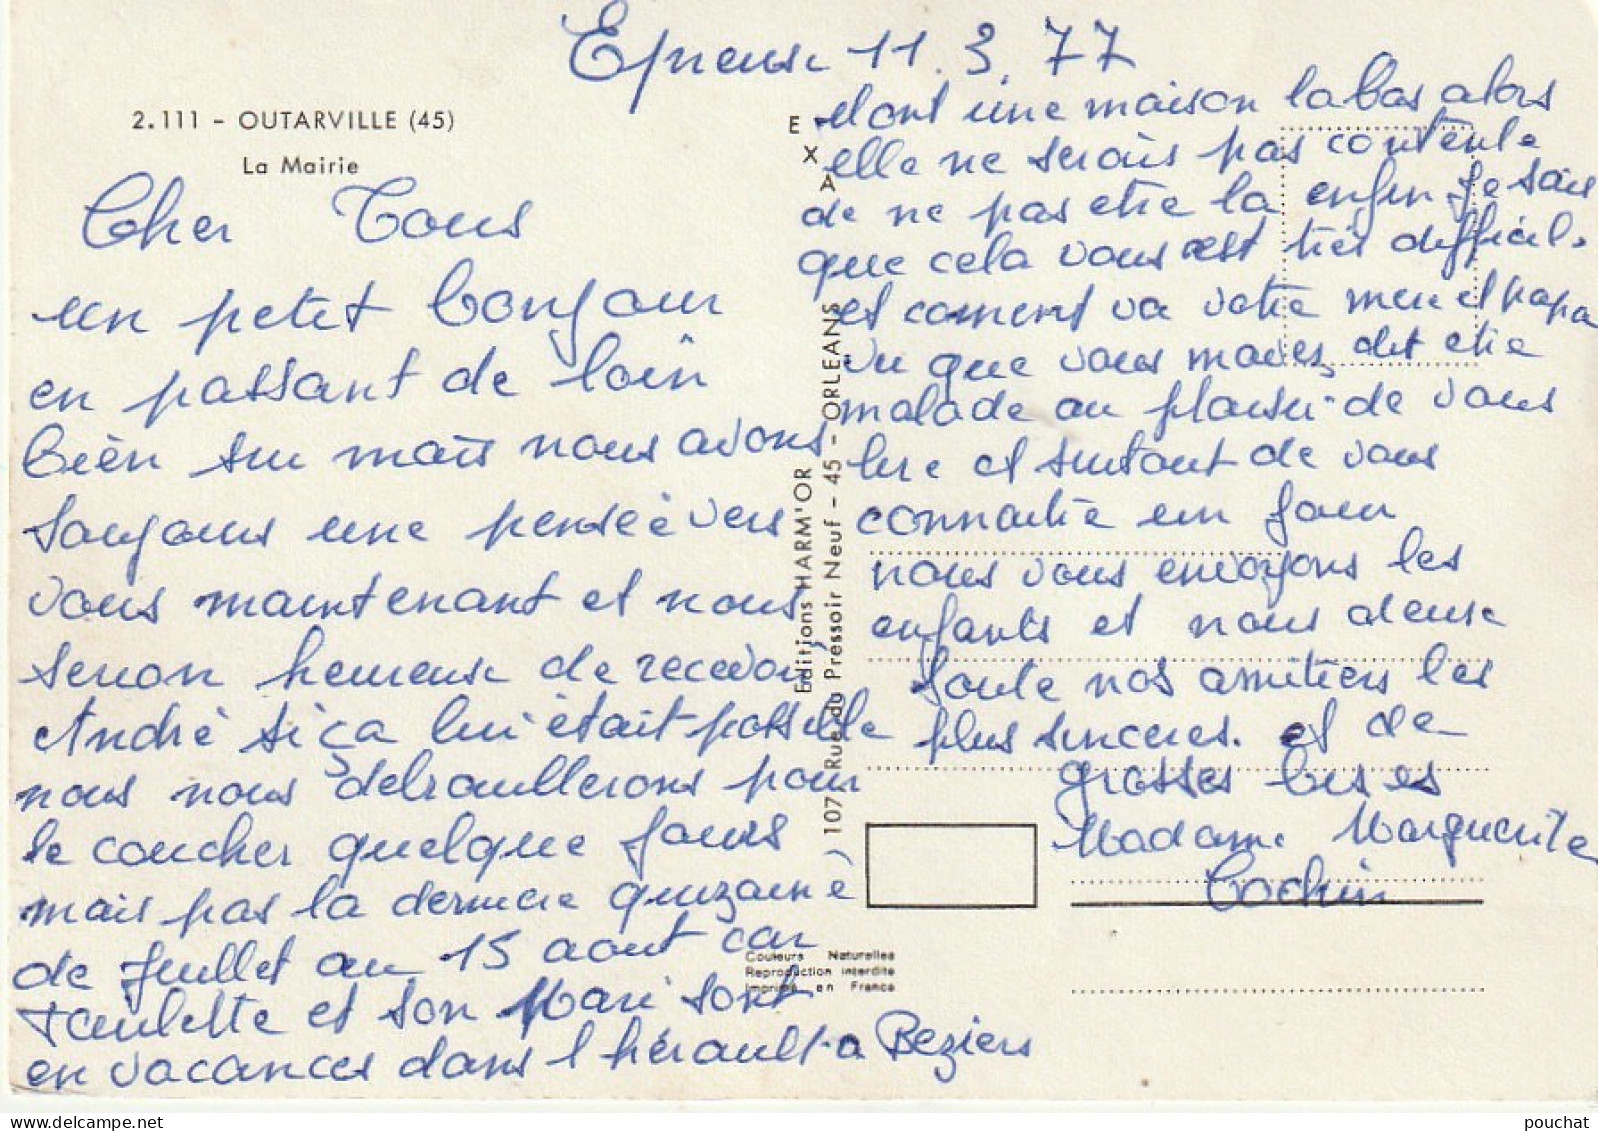 Epreuse 11.3.77
2.111 - OUTARVILLE (45)
La Mairie
Cher Tous
un petit bonjour
en passant de loin
bien sur mais nous avons
toujours une pensée vers
vous maintenant et nous
seron heureuse de recevoir
André si ça lui était possible
nous nous debrouillerons pour
le coucher quelque jours
mais pas la derniere quinzaine
de Juillet au 15 aout car
Paulette et son Mari sont
en vacances dans l hérault a Beziers
dont une maison labas alors
elle ne serais pas contente
de ne pas etre la enfin je sais
que cela vous est très difficil.
et coment va votre mere et papa
vu que vous m'avez dit etre
malade au plaisir de vous
lire et surtout de vous
connaitre un jour
nous vous envoyons les
enfants et nous deuse
toute nos amitiers les
plus sinceres. et de
grosses bises
Madame Marguerite
Cochin
EXA
Editions HARM'OR
107, Rue du Pressoir Neuf - 45 - ORLEANS
Couleurs Naturelles
Reproduction interdite
Imprimé en France
pouchat